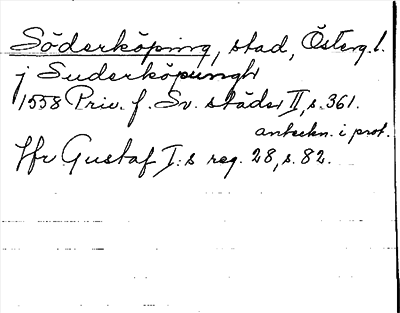 Söderköping, stad, Österg. l.
j Suderköpungh
1558 Priv. f. Sv. städer II, s. 361.
anteckn. i prot.
Jfr Gustaf I:s reg. 28, s. 82.